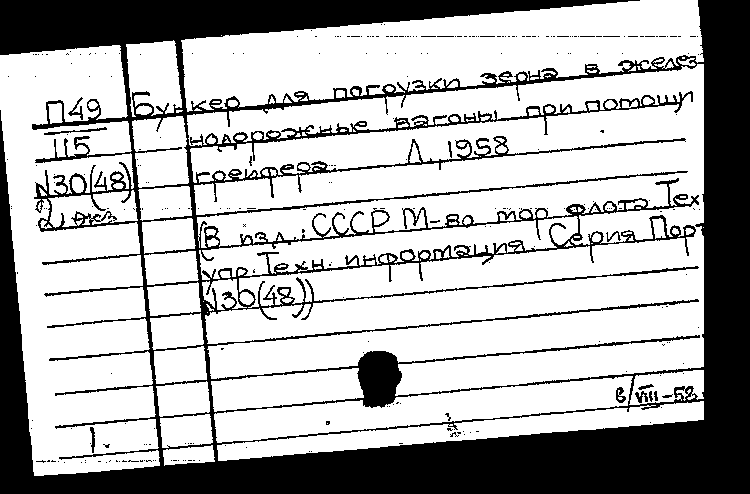 П49 Бункер для погрузки зерна в желез-
115 нодорожные вагоны при помощи
N30(48) грейфера. Л., 1958
2 экз
(В изд.: СССР. М-во мор. флота. Тех
упр. Техн. информация. Серия Порт
N30(48))
6/VIII-58
1.